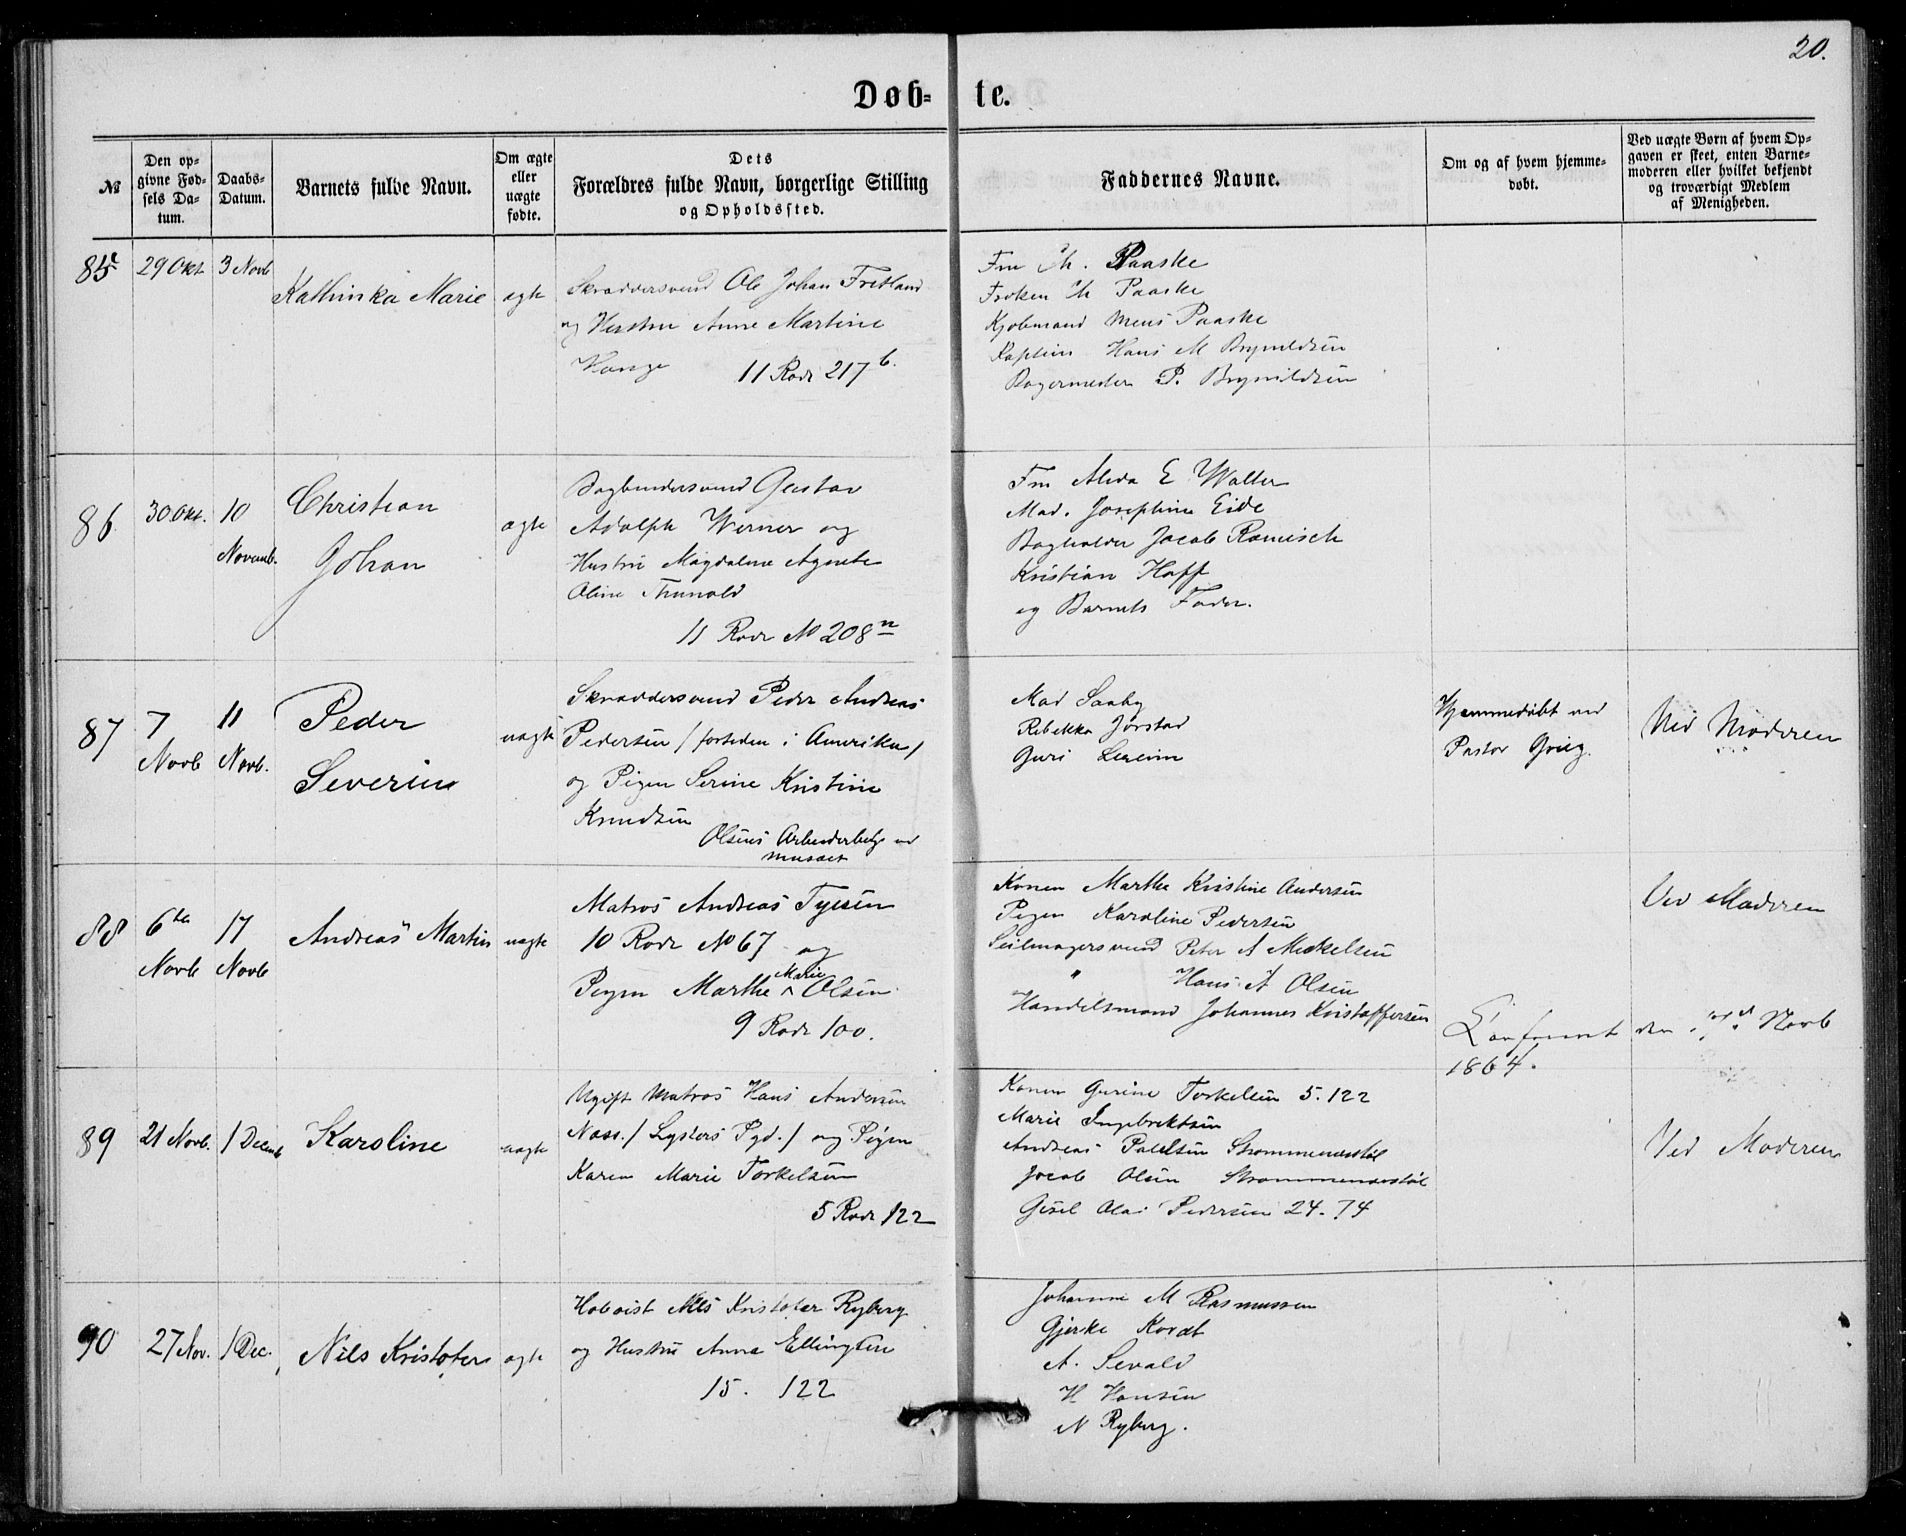 20.
Døb- te.
№
Den opgivne Fødsels Datum.
Daabs-Datum.
Barnets fulde Navn.
Om ægte eller uægte fødte.
Dets Forældres fulde Navn, borgerlige Stilling og Opholdssted.
Faddernes Navne.
Om og af hvem hjemmedøbt.
Ved uægte Børn af hvem Opgaven er skeet, enten Barnemoderen eller hvilket bekjendt og troværdigt Medlem af Menigheden.
85 29 Okt 3 Novb
Kathinka Marie
ægte
Skræddersvend Ole Johan Fretland
og Hustru Anne Martine
Hauge 11 Rode 217 b.
Fru Th. Paaske
Frøken Th Paaske
Kjøbmand Mens Paaske
Kaptein Hans M Brynildsen
Bagermester P. Brynildsen
86. 30 Okt. 10
Novemb.
Christian
Johan
ægte
Bogbindersvend Gustav
Adolph Werner og
Hustru Magdalene Agnete
Oline Thunold
11 Rode No 208 n
Fru Alida E Walter
Mad. Josephine Eide
Bogholder Jacob Romisch
Kristian Hoff
og Barnets Fader.
87 7
Novb
11
Novb.
Peder
Severin
uægte
Skræddersvend Peder Andreas
Pedersen / fortiden i Amerika /
og Pigen Serine Kristine
Knudsen
Olsens Arbeiderbolig ved
musæet
Mad Saaby
Rebekka Jorstad
Guri
Hjemmedøbt ved
Pastor Grieg.
Ved Moderen
88 6te
Novb
17
Novb
Andreas Martin
uægte
Matros Andreas Tyssen
10 Rode No 67 og
Marie
Pigen Marthe ^ Olsen
9 Rode 100.
Konen Marthe Kristine Andersen
Pigen Karoline Pedersen
Seilmagersvend Peter A Mickelsen
" Hans A Olsen
Handelsmand Johannes Kristoffersen
Ved Moderen
Konfereret den Novb
1864.
89 21 Novb. 1 Decemb
Karoline
uægte
Ugift Matros Hans Andersen
Næss. / Lysters Pgd. / og Pigen
Karen Marie Torkelsen
5 Rode 122
Konen Gurine Torkelsen 5. 122
Marie Ingebrektsen
Andreas Paulsen Strommenæstøl
Jacob Olsen Strommenæstøl
Gisel Olai Pedersen 24-74
Ved Moderen
90 27 Nov. 1 Dec.
Nils Kristofer
ægte
Hoboist Nils Kristofer Ryberg
og Hustru Anna Ellingsen
15. 122
Johanne M Rasmussen
Gjerke Kordt
A. Sevald
H Hansen
N Ryberg.